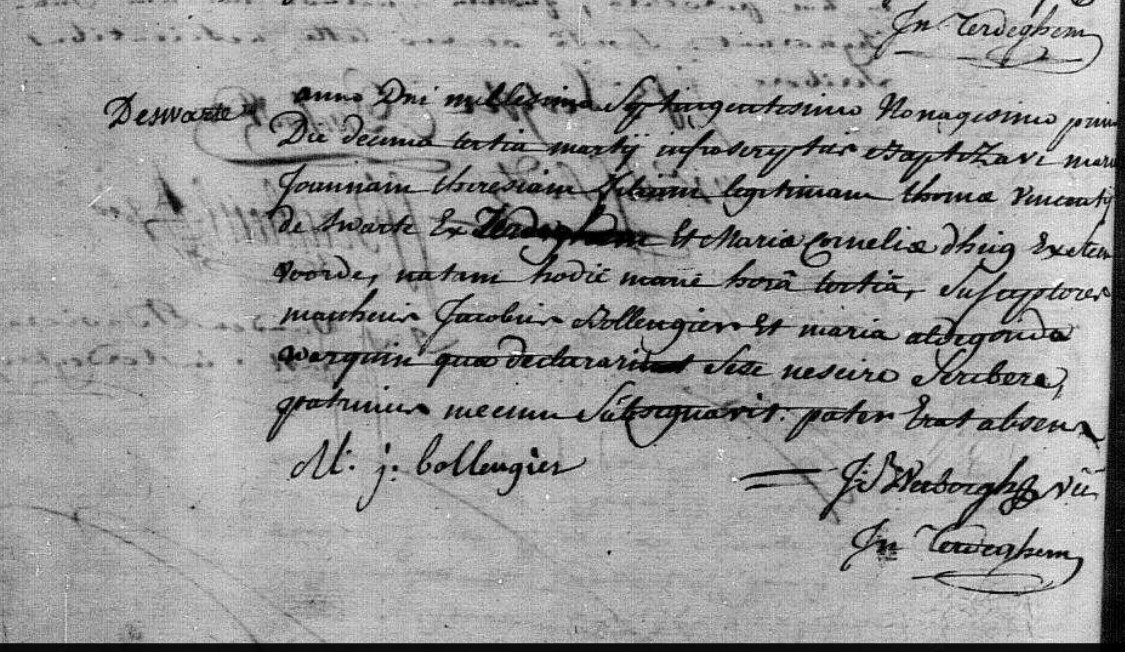 In Terdeghem
Deswarte
anno Dni millesimo Septuagentesimo Nonagesimo primo
Die decima tertia martij infrascriptus Baptizavi mari
Joannam theresiam filiam legitimam thomæ Vincentij
de Swarte Ex Terdeghem Et Mariæ Corneliæ dheig Ex
voorde, natam hodie mane horâ tertiâ, Susceptores
mattheus Jacobus Bollengier Et maria aldegonda
warquin quæ declaravit Sese nescire Scribere,
patrinus mecum Subsignavit. pater Erat absens
M. j. bollengier
In Terdeghem